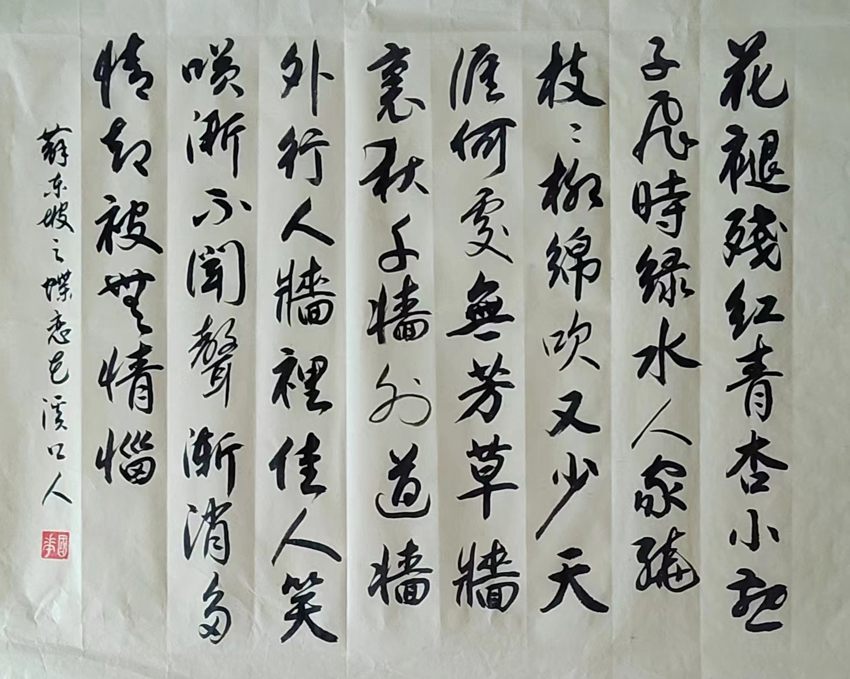 花褪殘红青杏小燕
子飛時緑水人家繞
枝〻柳綿吹又少天
涯何處無芳草牆
裏秋千牆外道牆
外行人牆裡佳人笑
唤漸不聞聲漸消多
情却被無情惱
蘇东坡之蝶恋花溪口人